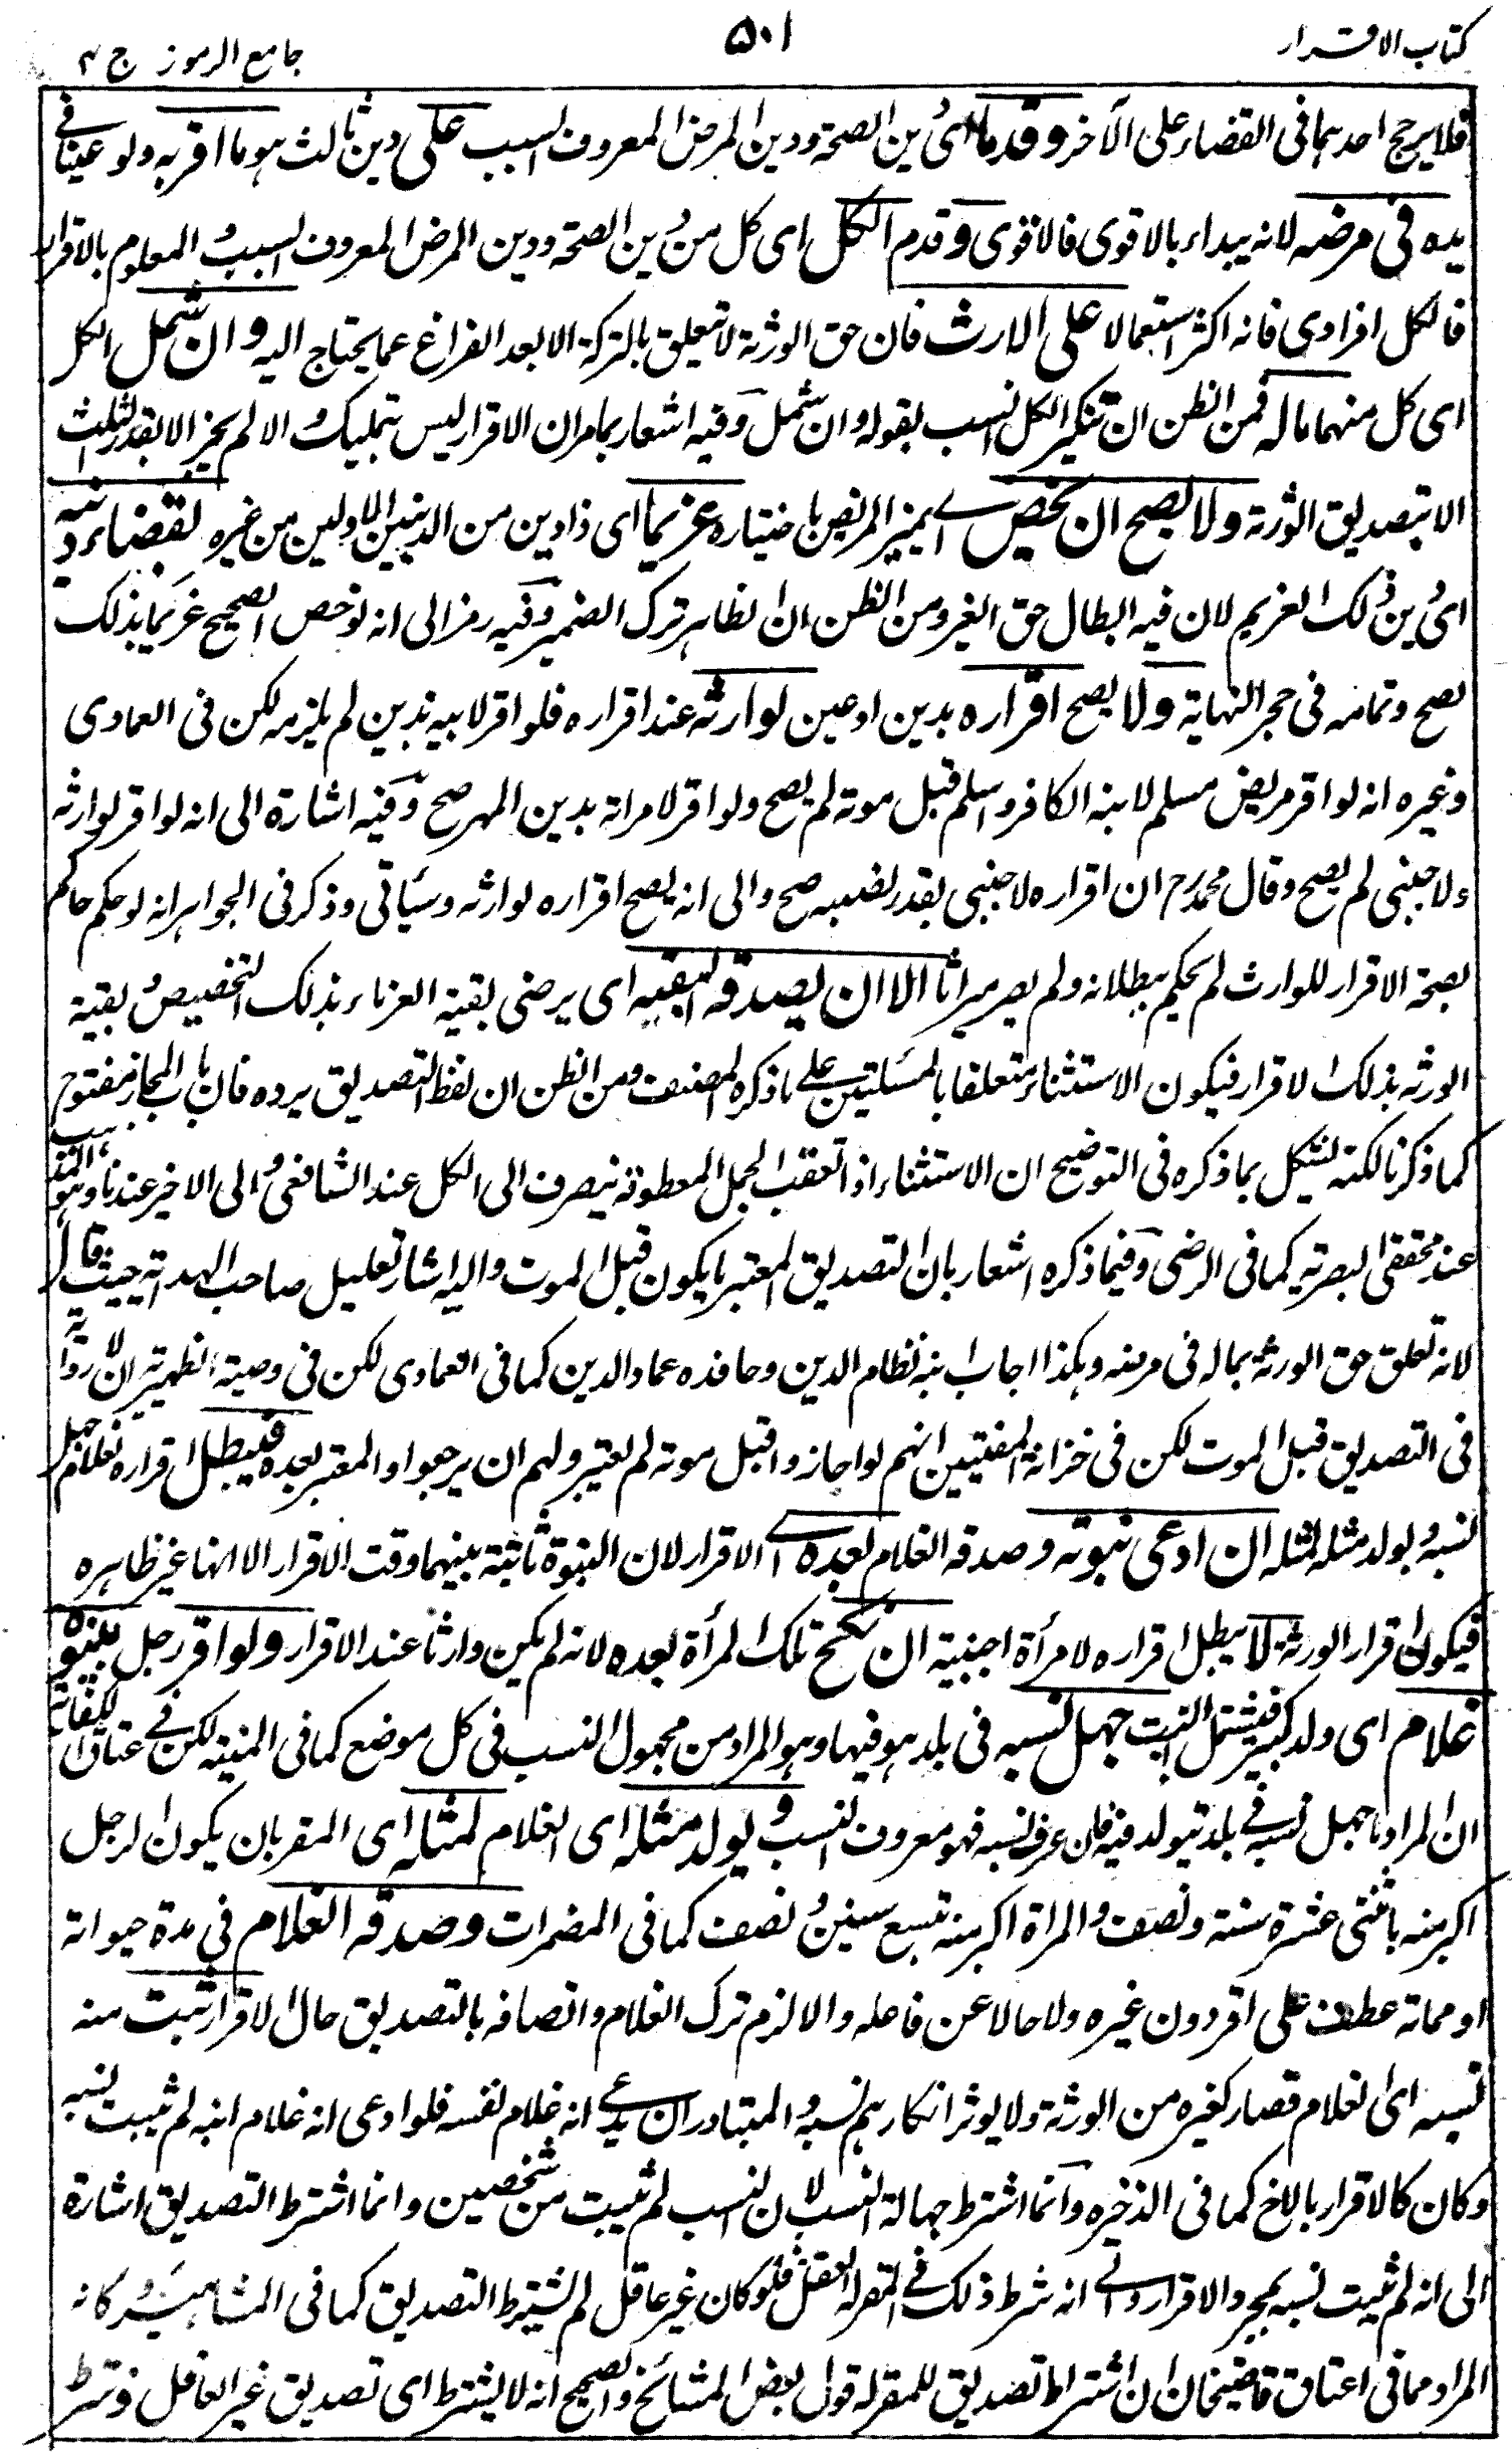 كتاب الاقرار
٥٠١
جامع الرموز ج ٣
فلا يرجح احدهما فى القضاء على الآخر وقدما اى دين الصحة ودين المرض المعروف السبب على دين ثالث هو ما اقر به ولو عينا فى
يده فى مرضه لانه يبداء بالاقوى فالاقوى وقدم الكل اى كل من دين الصحة ودين المرض المعروف السبب والمعلوم بالاقرار
فالكل افرادى فانه اكثر استعمالا على الارث فان حق الورثة لا تتعلق بالتركة الا بعد الفراغ عما يحتاج اليه وان شمل الكل
اى كل منهما ماله فمن الظن ان تنكير الكل انسب بقوله وان شمل وفيه اشعار بما مر ان الاقرار ليس بتمليك والا لم يجز الا بقدر الثلث
الا بتصديق الورثة ولا يصح ان يخص اى يميز المريض باختياره غريما اى ذا دين من الدينين الاولين من غيره بقضاء دينه
اى دين ذلك الغريم لان فيه ابطال حق الغير ومن الظن ان الظاهر ترك الضمير وفيه رمز الى انه لو خص الصحيح غريما بذلك
يصح وتمامه فى حجر النهاية ولا يصح اقراره بدين او عين لوارثه عند اقراره فلو اقر لابيه بدين لم يلزمه لكن فى العمادى
وغيره انه لو اقر مريض مسلم لابنه الكافر واسلم قبل موته لم يصح ولو اقر لامراته بدين المهر صح وفيه اشارة الى انه لو اقر لوارثه
ولاجنبى لم يصح وقال محمد رح ان اقراره لاجنبى بقدر نصيبه صح والى انه يصح اقراره لوارثه وسياتى وذكر فى الجواهر انه لو حكم حاكم
بصحة الاقرار للوارث لم يحكم ببطلانه ولم يصر ميراثا الا ان يصدقه البقية اى يرضى بقية الغرماء بذلك التخصيص وبقية
الورثه بذلك الاقرار فيكون الاستثناء متعلقا بالمسئلتين على ما ذكره المصنف ومن الظن ان لفظ التصديق يرده فان باب المجاز مفتوح
كما ذكرنا لكنه يشكل بما ذكره فى التوضيح ان الاستثناء اذا تعقب الجمل المعطوفة ينصرف الى الكل عند الشافعى والى الاخير عندنا وهو
عند محققى البصرية كما فى الرضى وفيما ذكره اشعار بان التصديق المعتبر ما يكون قبل الموت واليه اشار تعليل صاحب الهداية حيث قال
لانه تعلق حق الورثة بماله فى مرضه وهكذا اجاب ابنه نظام الدين وحافده عماد الدين كما فى العمادى لكن فى وصية الظهيرية ان لا رواية
فى التصديق قبل الموت لكن فى خزانة المفتيين انهم لو اجازوا قبل موته لم يعتبر ولهم ان يرجعوا والمعتبر بعده فيبطل اقراره لغلام جهل
نسبه ويولد مثله لمثله ان ادعى بنوته وصدقه الغلام بعده اى الاقرار لان البنوة ثابتة بينهما وقت الاقرار الا انها غير ظاهره
فيكون اقرار الورثة لا يبطل اقراره لامرأة اجنبية ان نكح تلك المرأة بعده لانه لم يكن وارثا عند الاقرار ولو اقر رجل ببنوة
غلام اى ولد كبير فيشتمل البنت جهل نسبه فى بلد هو فيها وهو المراد من مجهول النسب فى كل موضع كما فى المنية لكن فى عتاق الكفاية
ان المراد ما جهل نسبه فى بلد يتولد فيه فان عرف نسبه فهو معروف النسب ويولد مثله اى الغلام لمثله اى المقر بان يكون الرجل
اكبر منه باثنتى عشرة سنة ونصف والمراة اكبر منه بتسع سنين ونصف كما فى المضمرات وصدقه الغلام فى مدة حيواته
او مماته عطف على اقر دون غيره ولا حالا عن فاعله والا لزم ترك الغلام واتصافه بالتصديق حال الاقرار ثبت منه
نسبه اى الغلام فصار كغيره من الورثة ولا يوثر انكارهم نسبه والمتبادر ان يدعى انه غلام لنفسه فلو ادعى انه غلام ابنه لم يثبت نسبه
وكان كالاقرار بالاخ كما فى الذخيره وانما اشترط جهالة النسب لان النسب لم يثبت من شخصين وانما اشترط التصديق اشارة
الى انه لم يثبت نسبه بمجرد الاقرار وفى انه شرط ذلك فى المقر له العقل فلو كان غير عاقل لم يشترط التصديق كما فى المشاهير وكانه
المراد مما فى اعتاق قاضيخان ان اشتراط تصديق للمقر له قول بعض المشائخ والصحيح انه لا يشترط اى تصديق غير العاقل وشرط